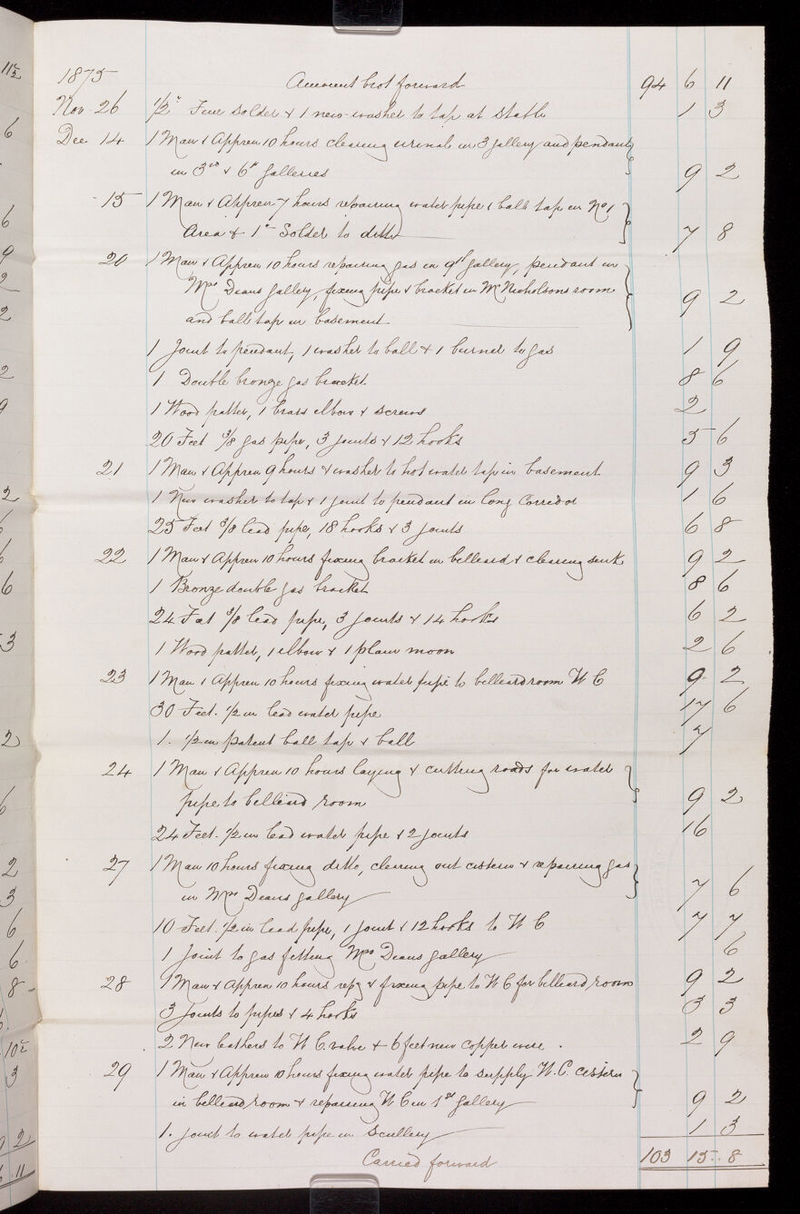 1875 Amount brot forward 94 6 11
Nov 26 1/2 Fine Solder & 1 new washer to tap at Stable 1 3
Dec 14 1 Man & Appren 10 hours clearing urinal in 3 gallery and pendants
in 3rd & 6th Galleries 9 2
15 1 Man & Appren 7 hours repairing water pipe & ball tap in No 1
Area & 1 Solder to ditto 7 8
20 1 Man & Appren 10 hours repairing gas in 9th gallery, pendant in
Mrs Deans Gallery, fixing pipe & bracket in Mr Nicholsons room
and ball tap in basement 9 2
1 Joint to pendant, 1 washer to ball & 1 burner to gas 1 9
1 Double bronze gas bracket 8 6
1 Wood patter, 1 brass elbow & screws 2
20 Feet 3/8 gas pipe, 3 joints & 12 hooks 5 6
21 1 Man & Appren 9 hours & washer to hot water tap in basement 9 3
1 New washer to tap & 1 joint to pendant in long Corridor 1 6
25 Feet 3/8 lead pipe, 18 hooks & 3 joints 6 8
22 1 Man & Appren 10 hours fixing bracket in billeard & clearing sink 9 2
1 Bronze double gas bracket 8 6
24 Feet 3/8 lead pipe, 3 joints & 14 hooks 6 2
1 Wood patter, 1 elbow & 1 plain moon 2 6
23 1 Man & Appren 10 hours fixing water pipe to billeard room W C 9 2
30 Feet. 1/2 in lead water pipe 17 6
1. 1/2 in patent ball tap & ball 7
24 1 Man & Appren 10 hours laying & cutting roads for water
pipe to billeard room 9 2
24 Feet. 1/2 in lead water pipe & 2 joints 16
27 1 Man 10 hours fixing ditto, clearing out cistern & repairing gas
in Mrs Deans gallery 7 6
10 Feet. 1/2 in lead pipe, 1 joint & 12 hooks to W C 7 7
1 Joint to gas fitting Mrs Deans gallery 6
28 1 Man & Appren 10 hours repg & fixing pipe to W C for billeard room 9 2
3 Joints to pipes & 4 hooks 3 3
2 New leathers to W C. valve & 6 feet new copper wire . 2 9
29 1 Man & Appren 10 hours fixing water pipe to supply W. C. cistern
in billeard room & repairing W C in 1st gallery 9 2
1. joint to water pipe in Scullery 1 3
Carried forward 103 15 8